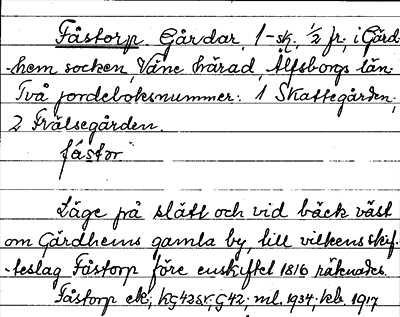 Fåstorp. Gårdar, 1-sk, 1/2 fr, i Gärd-
hem socken, Väne härad, Älfsborgs län.
Två jordeboksnummer: 1 Skattegården,
2 Frälsegården.
fástor
Läge på slätt och vid bäck väst
om Gärdhems gamla by, till vilkens skif-
teslag Fåstorp före enskiftet 1816 räknades.
Fåstorp ek; kG42sv; G42; ml. 1934; kb 1917